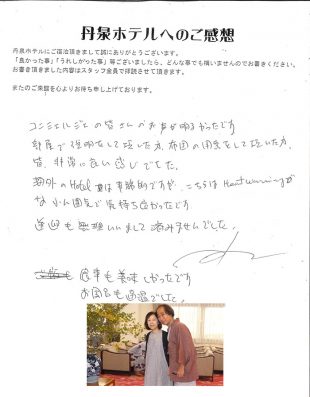 丹泉ホテルへのご感想
丹泉ホテルにご宿泊頂きまして誠にありがとうございます。
「良かった事」「うれしかった事」等ございましたら、どんな事でも構いませんのでお書きください。
お書き頂きました内容はスタッフ全員で拝読させて頂きます。
またのご来館を心よりお待ち申し上げております。
コンシェルジェの皆さんのお声が明るかったです
部屋で説明をして頂いた方、布団の用意をして頂いた方、
皆、非常に良い感じでした。
海外のHotel 事務的ですが、こちらは Heart warming
な 雰囲気で気持ち良かったです
無理いいまして 済みませんでした。
食事も美味しかったです
お風呂も最適でした。